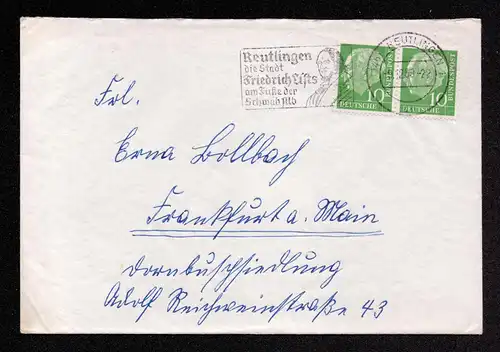 Reutlingen
die Stadt
Friedrich Lists
am Fuße der
Schwäb Alb
REUTLINGEN
10 10
DEUTSCHE DEUTSCHE
BUNDESPOST BUNDESPOST
Frl.
Erna Bollbach
Frankfurt a. Main
Dornbuschsiedlung
Adolf Reichweinstraße 43